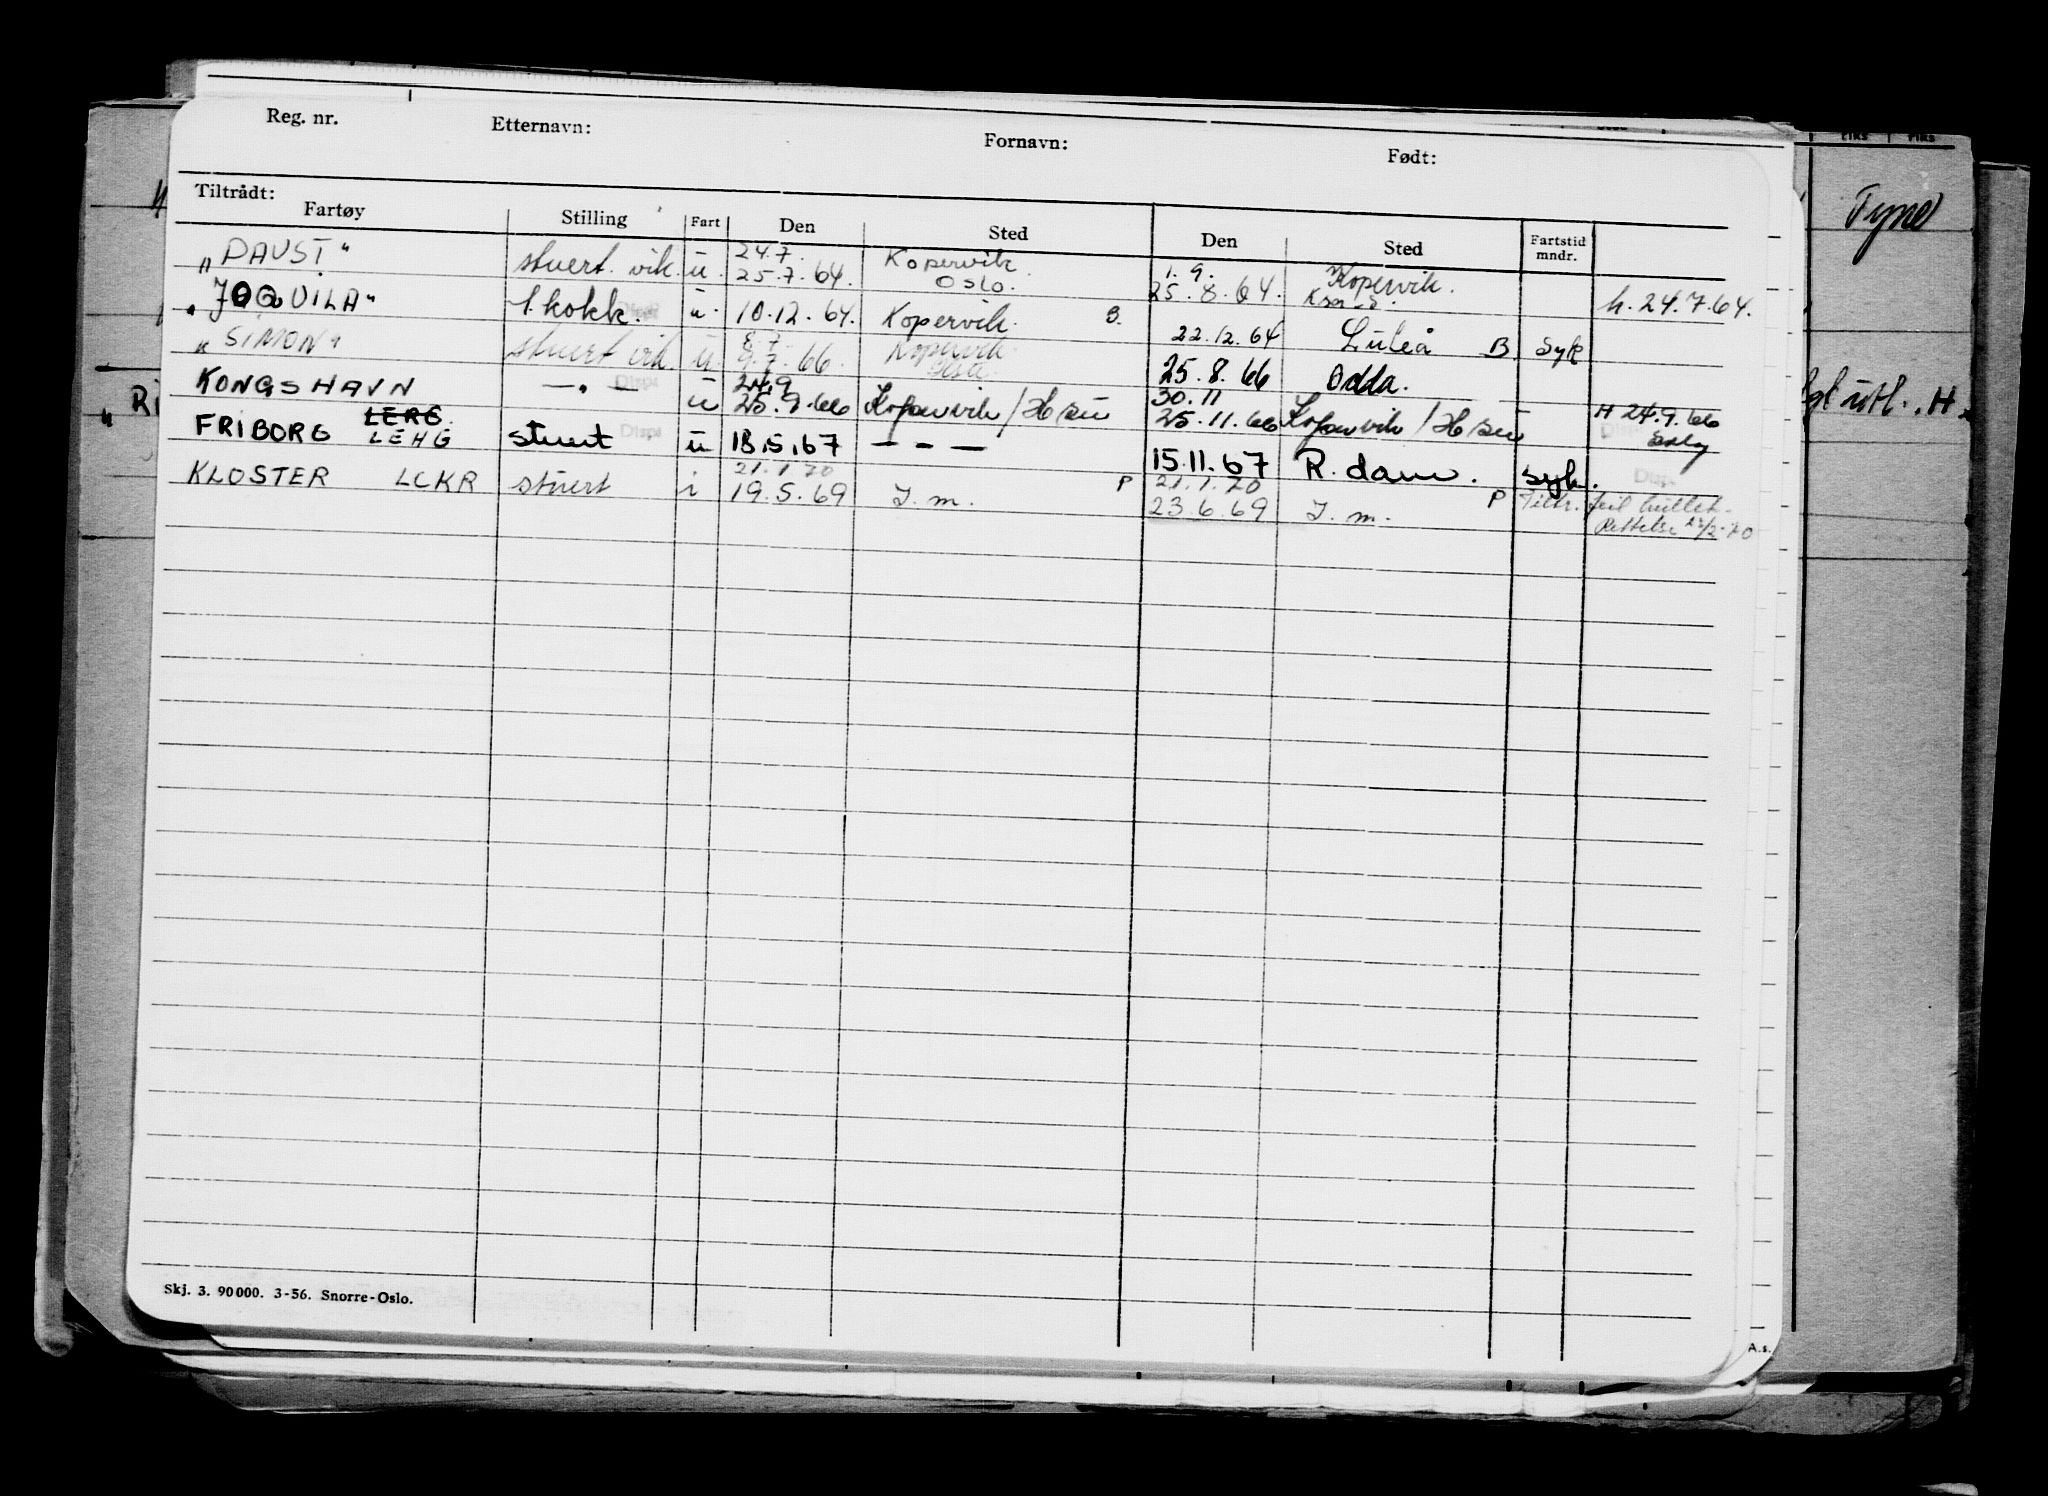 Reg. nr. Etternavn: Fornavn: Født:
Tiltrådt:
Fartøy Stilling Fart Den Sted Den Sted Fartstid mndr.
Tyne
24.7. Kopervik. 1. 9. Kopervik.
„DAVST" stuert. vik. u. 25.7.64. Oslo. 25.8.64. h. 24.7.64.
1. kokk. u. 10.12.64. Kopervik. B. 22.12.64 Luleå B. Syk
8.7. Kopervik
„SIMONA stuert vik. u. 9.7.66. 25.8.66 Odda.
24.9 30.11
KONGSHAVN — „ — u 25.9.66 Kopervik / H sun 25.11.66 Kopervik / H sun H 24.9.66
LERG.
FRIBORG LEHG stuert u 18.5.67 — — — 15.11.67 R.dam. syk.
21.1.70 21.1.70
KLOSTER LCKR stuert i 19.5.69 J.m. P 23.6.69 J.m. P Tiltr. feil hullet.
Rettelse 23/2-70
utl. . H
Skj. 3. 90 000. 3-56. Snorre-Oslo.
A.s.